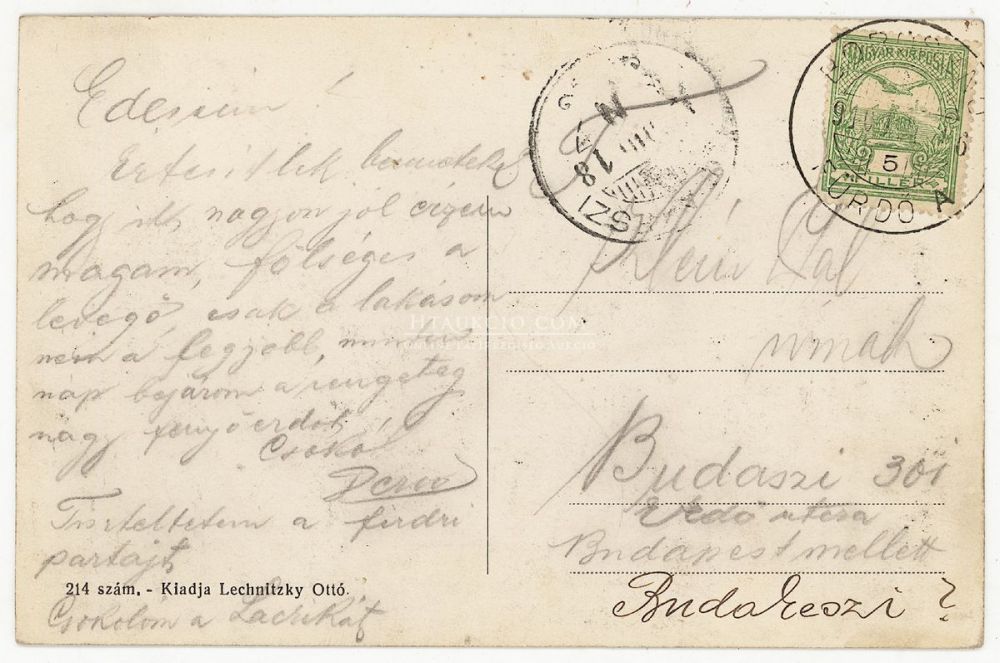 Edesem!
Ertesitlek benneteket
hogy itt nagyon jól érzem
magam, fölséges a
levegő, csak a lakásom
nem a legjobb, minden
nap bejárom a rengeteg
nagy fenyőerdőt,
Csókol
Tiszteltetem a
partajt
214 szám. - Kiadja Lechnitzky Ottó.
Csokolom a
HTAUKCIO.COM
MAGYAR KIR. POSTA
5
FILLÉR
FÜRDŐ A
18
Pál
úrnak
Budaszi 301
Erdő utcza
Budapest mellett
Budakeszi ?